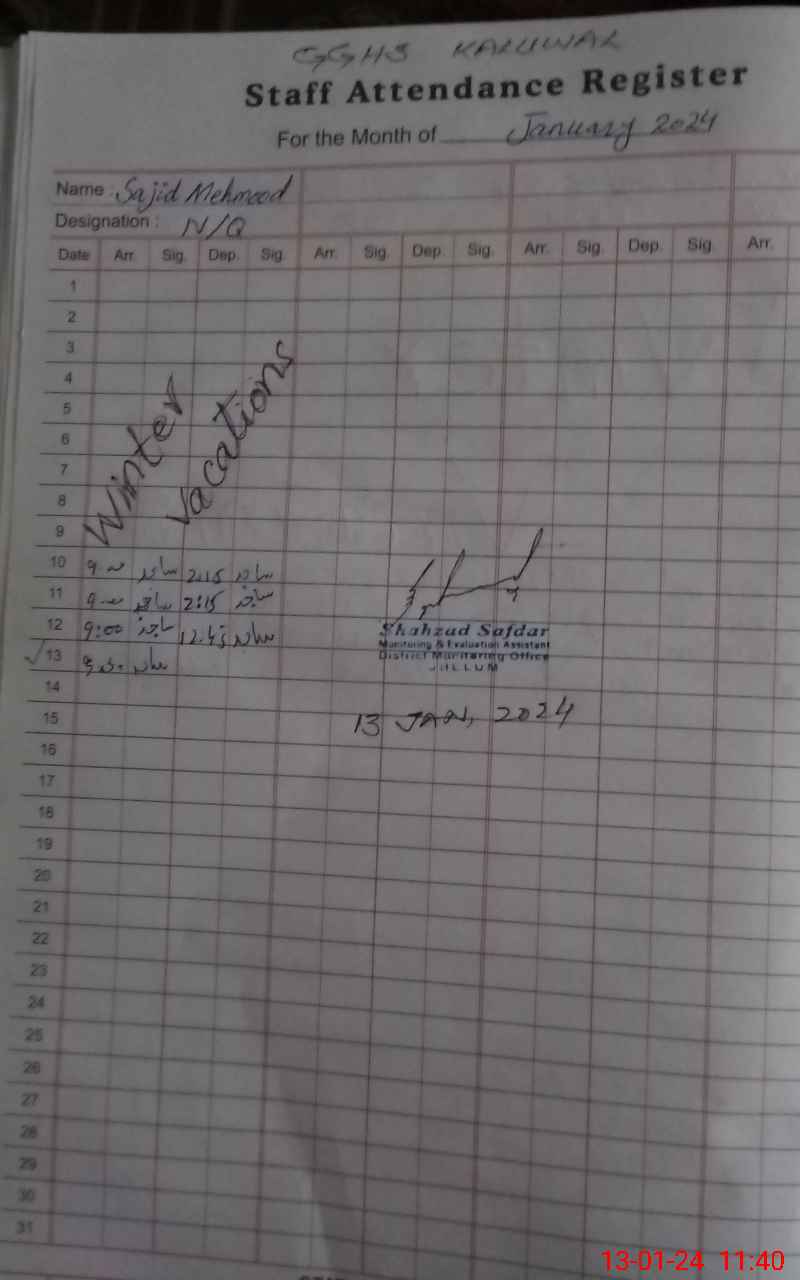 GGHS KARUWAL
Staff Attendance Register
For the Month of January 2024
Name : Sajid Mehmood
Designation : N/Q
Date Arr. Sig. Dep. Sig. Arr. Sig. Dep. Sig. Arr. Sig. Dep. Sig. Arr.
1
2
3
4
5
6
7
8
9
Winter
vacations
10 ساجد 2:15 ساجد
11 ساجد 2:15 ساجد
12 9:00 ساجد 12:45 ساجد
13 ساجد
Shahzad Safdar
Monitoring & Evaluation Assistant
District Monitoring Office
JHELUM
14
15
13 JAN, 2024
16
17
18
19
20
21
22
23
24
25
26
27
28
29
30
31
13-01-24 11:40